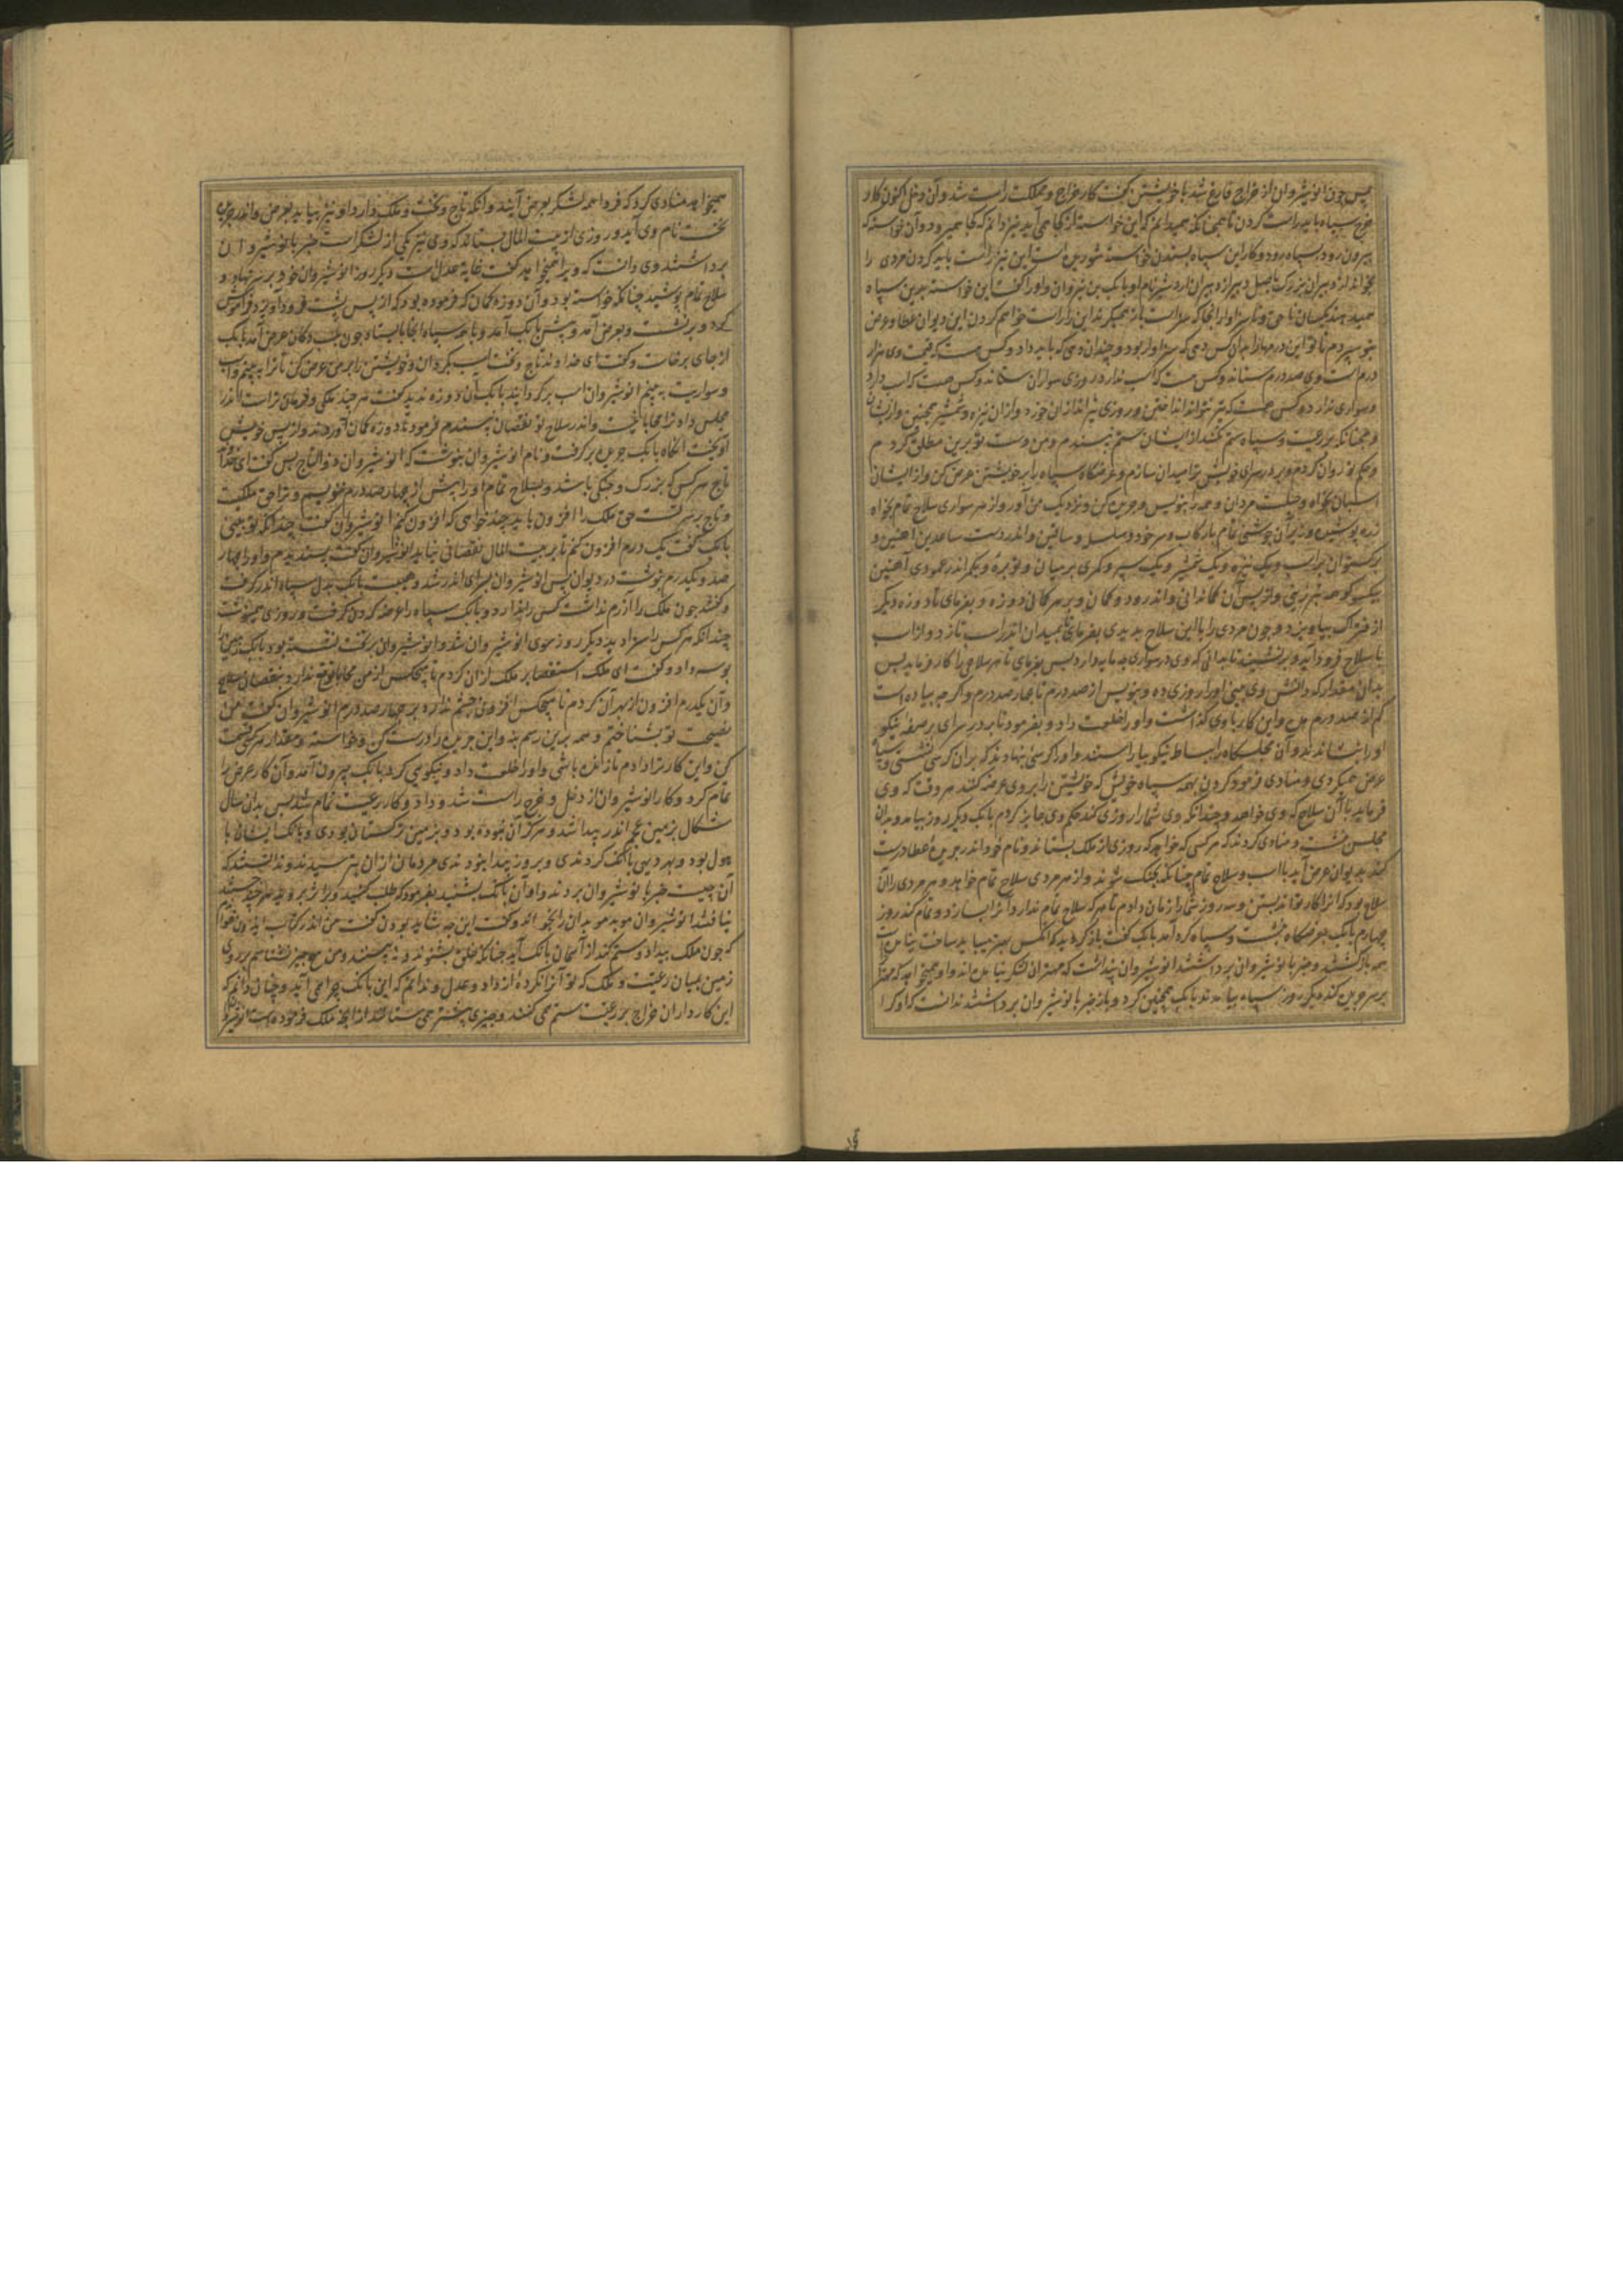 پس چون انوشیروان از خراج فارغ شد با خویشتن گفت کار خراج و مملکت راست شد و آن دخل اکنون کار
خرج سپاه باید راست کردن تا همچنانکه همیدانم که این خواسته از کجا همی آید نیز دانم که کجا همیرود و آن خواسته که
بیرون رود بسپاه رود و کار این سپاه بستدن خواسته شوریده است این نیز راست باید کردن مردی را
بخواند از دبیران بزرگ باصل دبیر از دبیران اردشیر نام او بابک بن نیروان و او را گفت این خواسته بدین سپاه
همیدهند یکسان ناحق و ناسزاوار آنجا که سزاست باز همیگیرند این را راست خواهم کردن این دیوان عطا و عرض
بتو سپردم تا تو این درمها را بدان کس دهی که سزاوار بود و چندان دهی که باید داد و کس هست که قیمت وی هزار
درم است وی صد درم ستاند و کس هست که اسب ندارد روزی سواران ستاند و کس هست که اسب دارد
و سواری نداند و کس هست که تیر نتواند انداختن و روزی تیراندازان خورد و از آن نیزه و شمشیر همچنین
و همچنانکه بر رعیت و سپاه ستم نکنند از ایشان ستم نپسندم و من دست تو برین مطلق کردم
و حکم تو روان کردم و بر در سرای خویش ترا میدان سازم و عرضگاه سپاه را بر خویشتن عرض کن و از ایشان
اسبان بخواه و حلیت مردان و همه را بنویس و جریده کن و نزدیک من آور و از هر سواری سلاح تمام بخواه
زره پوشیده و زبر آن جوشنی تمام با رکاب و سر خود و سلسله و ساقین و اندر دست ساعدین آهنین و
برگستوان بر اسب و یک نیزه و یک شمشیر و یک سپر و کمری بر میان و توبره و یکی اندر عمودی آهنین
بیکسو کوهه تبرزینی و از پس آن کمانی اندرود و کمان و بر هر کمانی دو زه و بفرمای تا دو زه دیگر
از فتراک بیاویزد و چون مردی را با این سلاح بدیدی بفرمای تا بمیدان اندر اسب تازد و از اسب
با سلاح فرود آید و برنشیند تا بدانی که وی در سواری چه مایه دارد پس بفرمای تا بهر سلاحی را کار فرماید پس
بدان مقدار که دانش وی بینی او را روزی ده و بنویس از صد درم تا چهار صد درم و اگر چه پیاده است
کم از صد درم مده و این کار با وی گذاشت و او را خلعت داد و بفرمود تا بر در سرای بر صفه نیکو
او را بنشاندند و آن مجلسگاه را بساط نیکو بیاراستند و او را کرسی بنهادند که بر آن کرسی نشستی و سپاه
عرض همیکردی و منادی فرمود کردن بهمه سپاه خویش که خویشتن را بر وی عرضه کنند هر وقت که وی
فرماید با آن سلاح که وی خواهد و چندانکه وی شما را روزی کند حکم وی جایز کردم بابک دیگر روز بیامد و بدان
مجلس نشست و منادی کردند که هر کسی که خواهد که روزی از ملک بستاند و نام خود اندر جریده عطا درست
کند بدیوان عرض آید با اسب و سلاح تمام چنانکه بجنگ شوند و از هر مردی سلاح تمام خواهد و هر مردی را آن
سلاح بود که آنرا کار تواند بستن و سه روز شما را زمان دادم تا هر که سلاح تمام ندارد آنرا بسازد و تمام کند روز
چهارم بابک بعرضگاه بنشست و سپاه گرد آمد بابک گفت بازگردید که آنکس بهتر میباید ساخت نیامده است
همه بازگشتند و خبر بانوشیروان برداشتند انوشیروان پنداشت که مهتران لشکر نیامده اند و او همیخواهد که مهتر
بر سر جریده کند دیگر روز سپاه بیامدند بابک همچنین کرد و باز خبر بانوشیروان برداشتند ندانست که او کرا
همیخواهد منادی کرد که فردا همه لشکر بعرض آیند و آنکه تاج و تخت و ملک دارد او نیز بیاید بعرض و اندر جریده
نخست نام وی آید و روزی از بیت المال بستاند که وی نیز یکی از لشکر است خبر بانوشیروان
برداشتند وی دانست که ویرا همیخواهد گفت غایة عدل است دیگر روز انوشیروان خود بر سر نهاد و
سلاح تمام پوشید چنانکه خواسته بود و آن دو زه کمان که فرموده بود که از پس پشت فرود آویزد فراموش
کرد و برنشست و بعرض آمد و پیش بابک آمد و با همه سپاه آنجا بایستاد چون دکان عرض آمد بابک
از جای برخاست و گفت ای خداوند تاج و تخت اسب بگردان و خویشتن را بر من عرض کن تا ترا ببینم و اسب
و سواریت ببینم انوشیروان اسب برگردانید بابک آن دو زه ندید گفت هر چند ملکی و فرمان تراست اندر
مجلس داد ترا محابا نیست و اندر سلاح تو نقصان نپسندم فرمود تا دو زه کمان آوردند و از پس خویش
آویخت آنگاه بابک جریده برگرفت و نام انوشیروان بنوشت که انوشیروان ذو التاج پس گفت ای خداوند
تاج هر کس که بزرگ و جنگی باشد و بسلاح تمام او را بیش از چهار صد درم ننویسم و ترا حق ملکت
و تاج بر سر تست حق ملک را افزون باید چند خواهی که افزون کنم انوشیروان گفت چندانکه تو بینی
بابک گفت یک درم افزون کنم تا بر بیت المال نقصانی نیاید انوشیروان گفت پسندیدم و او را چهار
صد و یکدرم نوشت در دیوان پس انوشیروان بسرای اندر شد و هیبت بابک بدل سپاه اندر گرفت
و گفتند چون ملک را آزرم نداشت کس را نیز ندارد و بابک سپاه را عرضه کردن گرفت و روزی همینوشت
چندانکه هر کس را سزا دید دیگر روز سوی انوشیروان شد و انوشیروان بر تخت نشسته بود بابک زمین را
بوسه داد و گفت ای ملک استقصا بر ملک از آن کردم تا هیچکس از من محابا توقع ندارد بنقصان سلاح
و آن یکدرم افزون از بهر آن کردم تا هیچکس افزونی چشم ندارد بر چهار صد درم انوشیروان گفت من
نصیحت تو بشناختم و همه برین رسم بنه و این جریده را درست کن و خواسته و مقدار هر کس قسمت
کن و این کار ترا دادم تا زنده باشی و او را خلعت داد و نیکویی کرد بابک بیرون آمد و آن کار عرض را
تمام کرد و کار انوشیروان از دخل و خرج راست شد و داد و کار رعیت تمام شد پس بدان سال
شگال بزمین عجم اندر پیدا شد و هرگز آن نبوده بود و بزمین ترکستان بودی و بانگ ایشان با
هول بود و بهر دیهی بانگ کردندی و بروز پیدا نبودندی مردمان از آن بترسیدند و ندانستند که
آن چیست خبر بانوشیروان بردند و او آن بانگ بشنید بفرمود که طلب کنید ویرا هر چند جستند
نیافتند انوشیروان موبد موبدان را بخواند و گفت این چه شاید بودن گفت من اندر کتاب ایدون خوانده ام
که چون ملک بیداد و ستم کند از آسمان بانگ آید چنانکه خلق بشنوند و نه بینند و من هیچ چیز نشناسم بر روی
زمین بمیان رعیت و ملک که تو آنرا نکرده از داد و عدل و ندانم که این بانگ چرا همی آید و چنان دانم که
این کارداران خراج بر رعیت ستم همی کنند و چیزی بیشتر همی ستانند از آنچه ملک فرموده است انوشیروان